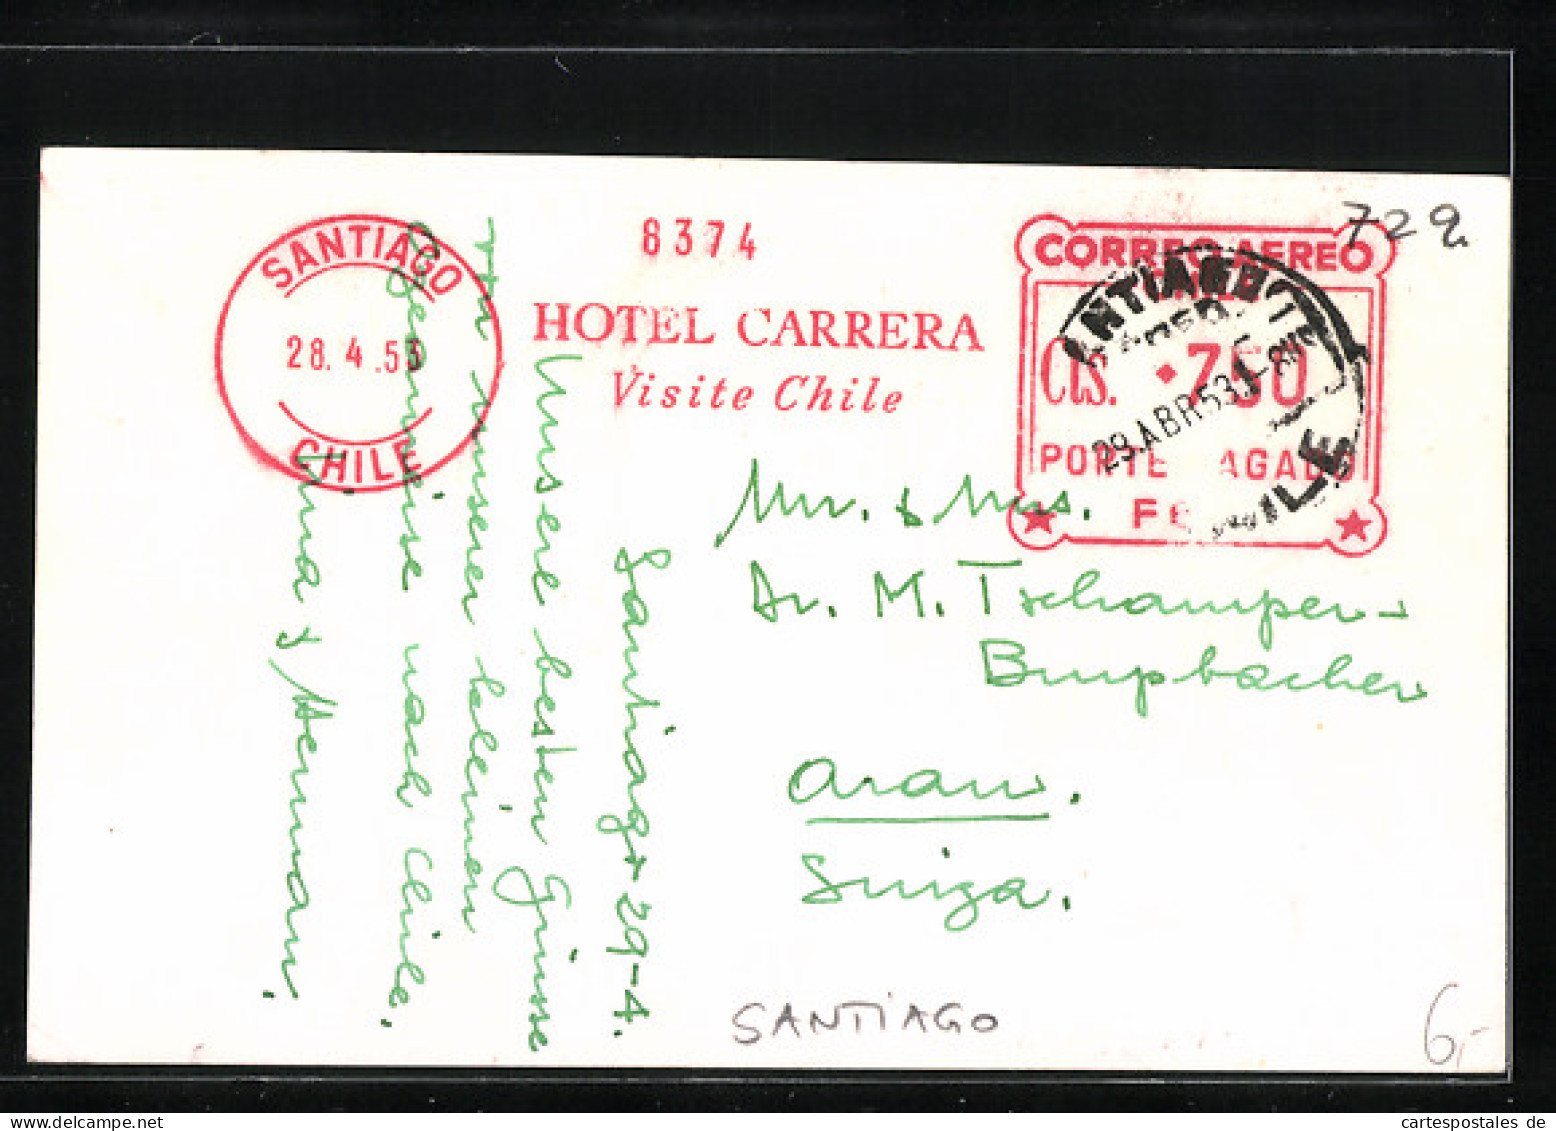 SANTIAGO
28.4.53
CHILE
8374
HOTEL CARRERA
Visite Chile
CORREO AEREO
Cts. 760
PORTE PAGADO
ANTIAGO
29.ABR53
CHILE
729
Santiago 29-4.
Unsere besten Grüsse
von unserer kleinen
nach Chile.
& Herman.
Mr. & Mrs.
Dr. M. Tschamper-
Bumpbacher
Arau.
Suiza.
SANTIAGO
6,-
cartespostales de